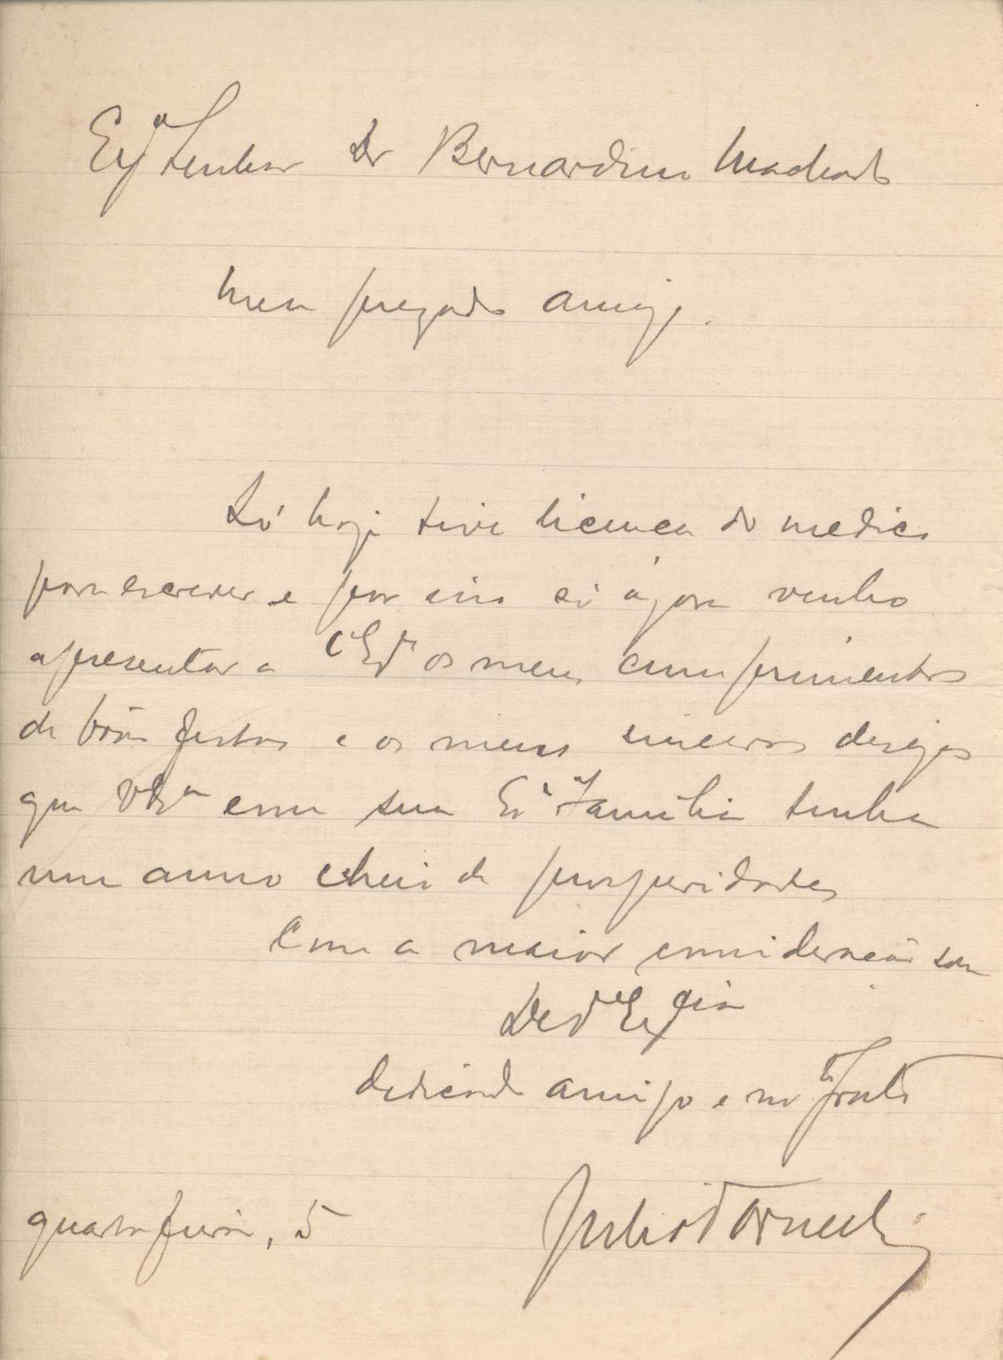 Exmo Senhor Dr Bernardino Machado
Meu presado amigo.
Só hoje tive licença do medico
para escrever e por isso só ágora venho
apresentar a V Exa os meus cumprimentos
de bôas festas e os meus sinceros desejos
que V Exa com sua Exa Familia tenha
um anno cheio de prosperidades
Com a maior consideração sou
De V Excia
dedicado amigo e mto grato
quarta feira, 5
Julio Dornellas